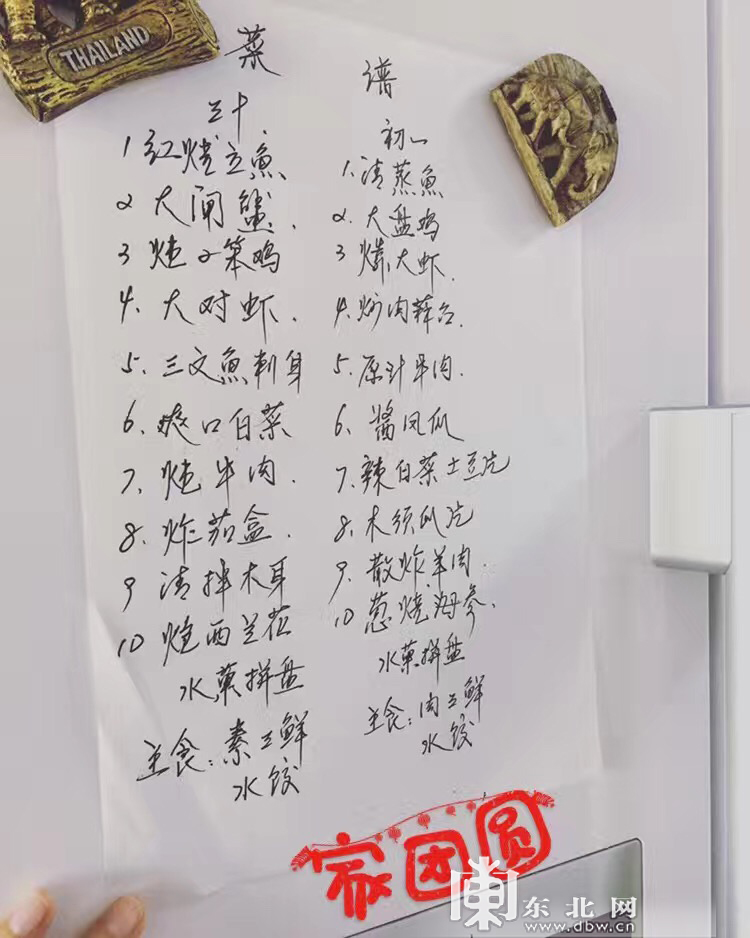 THAILAND
菜 谱
三十
1 红烧立鱼
2 大闸蟹.
3 炖小笨鸡
4. 大对虾.
5. 三文鱼刺身
6. 爽口白菜
7. 炖牛肉.
8. 炸茄盒.
9 清拌木耳
10 炝西兰花
水菓拼盘
主食: 素三鲜
水饺
初一
1. 清蒸鱼
2. 大盘鸡
3 㸆大虾.
4. 炒肉蒜台.
5. 原汁牛肉.
6. 酱凤爪
7. 辣白菜土豆片
8. 木须瓜片
9. 散炸羊肉.
10 葱烧海参.
水菓拼盘
主食: 肉三鲜
水饺
家团圆
东北网
www.dbw.cn